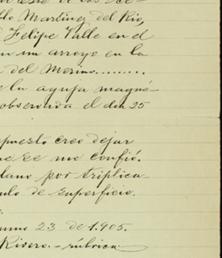 Martínez del Río,
Felipe Valle en el
un arroyo en la
del Merino........
la aguja magné-
observada el día 25
puesto creo dejar
que se me confió.
plano por triplica-
de superficie.
23 de 1.905.
Rivero.-rúbrica.